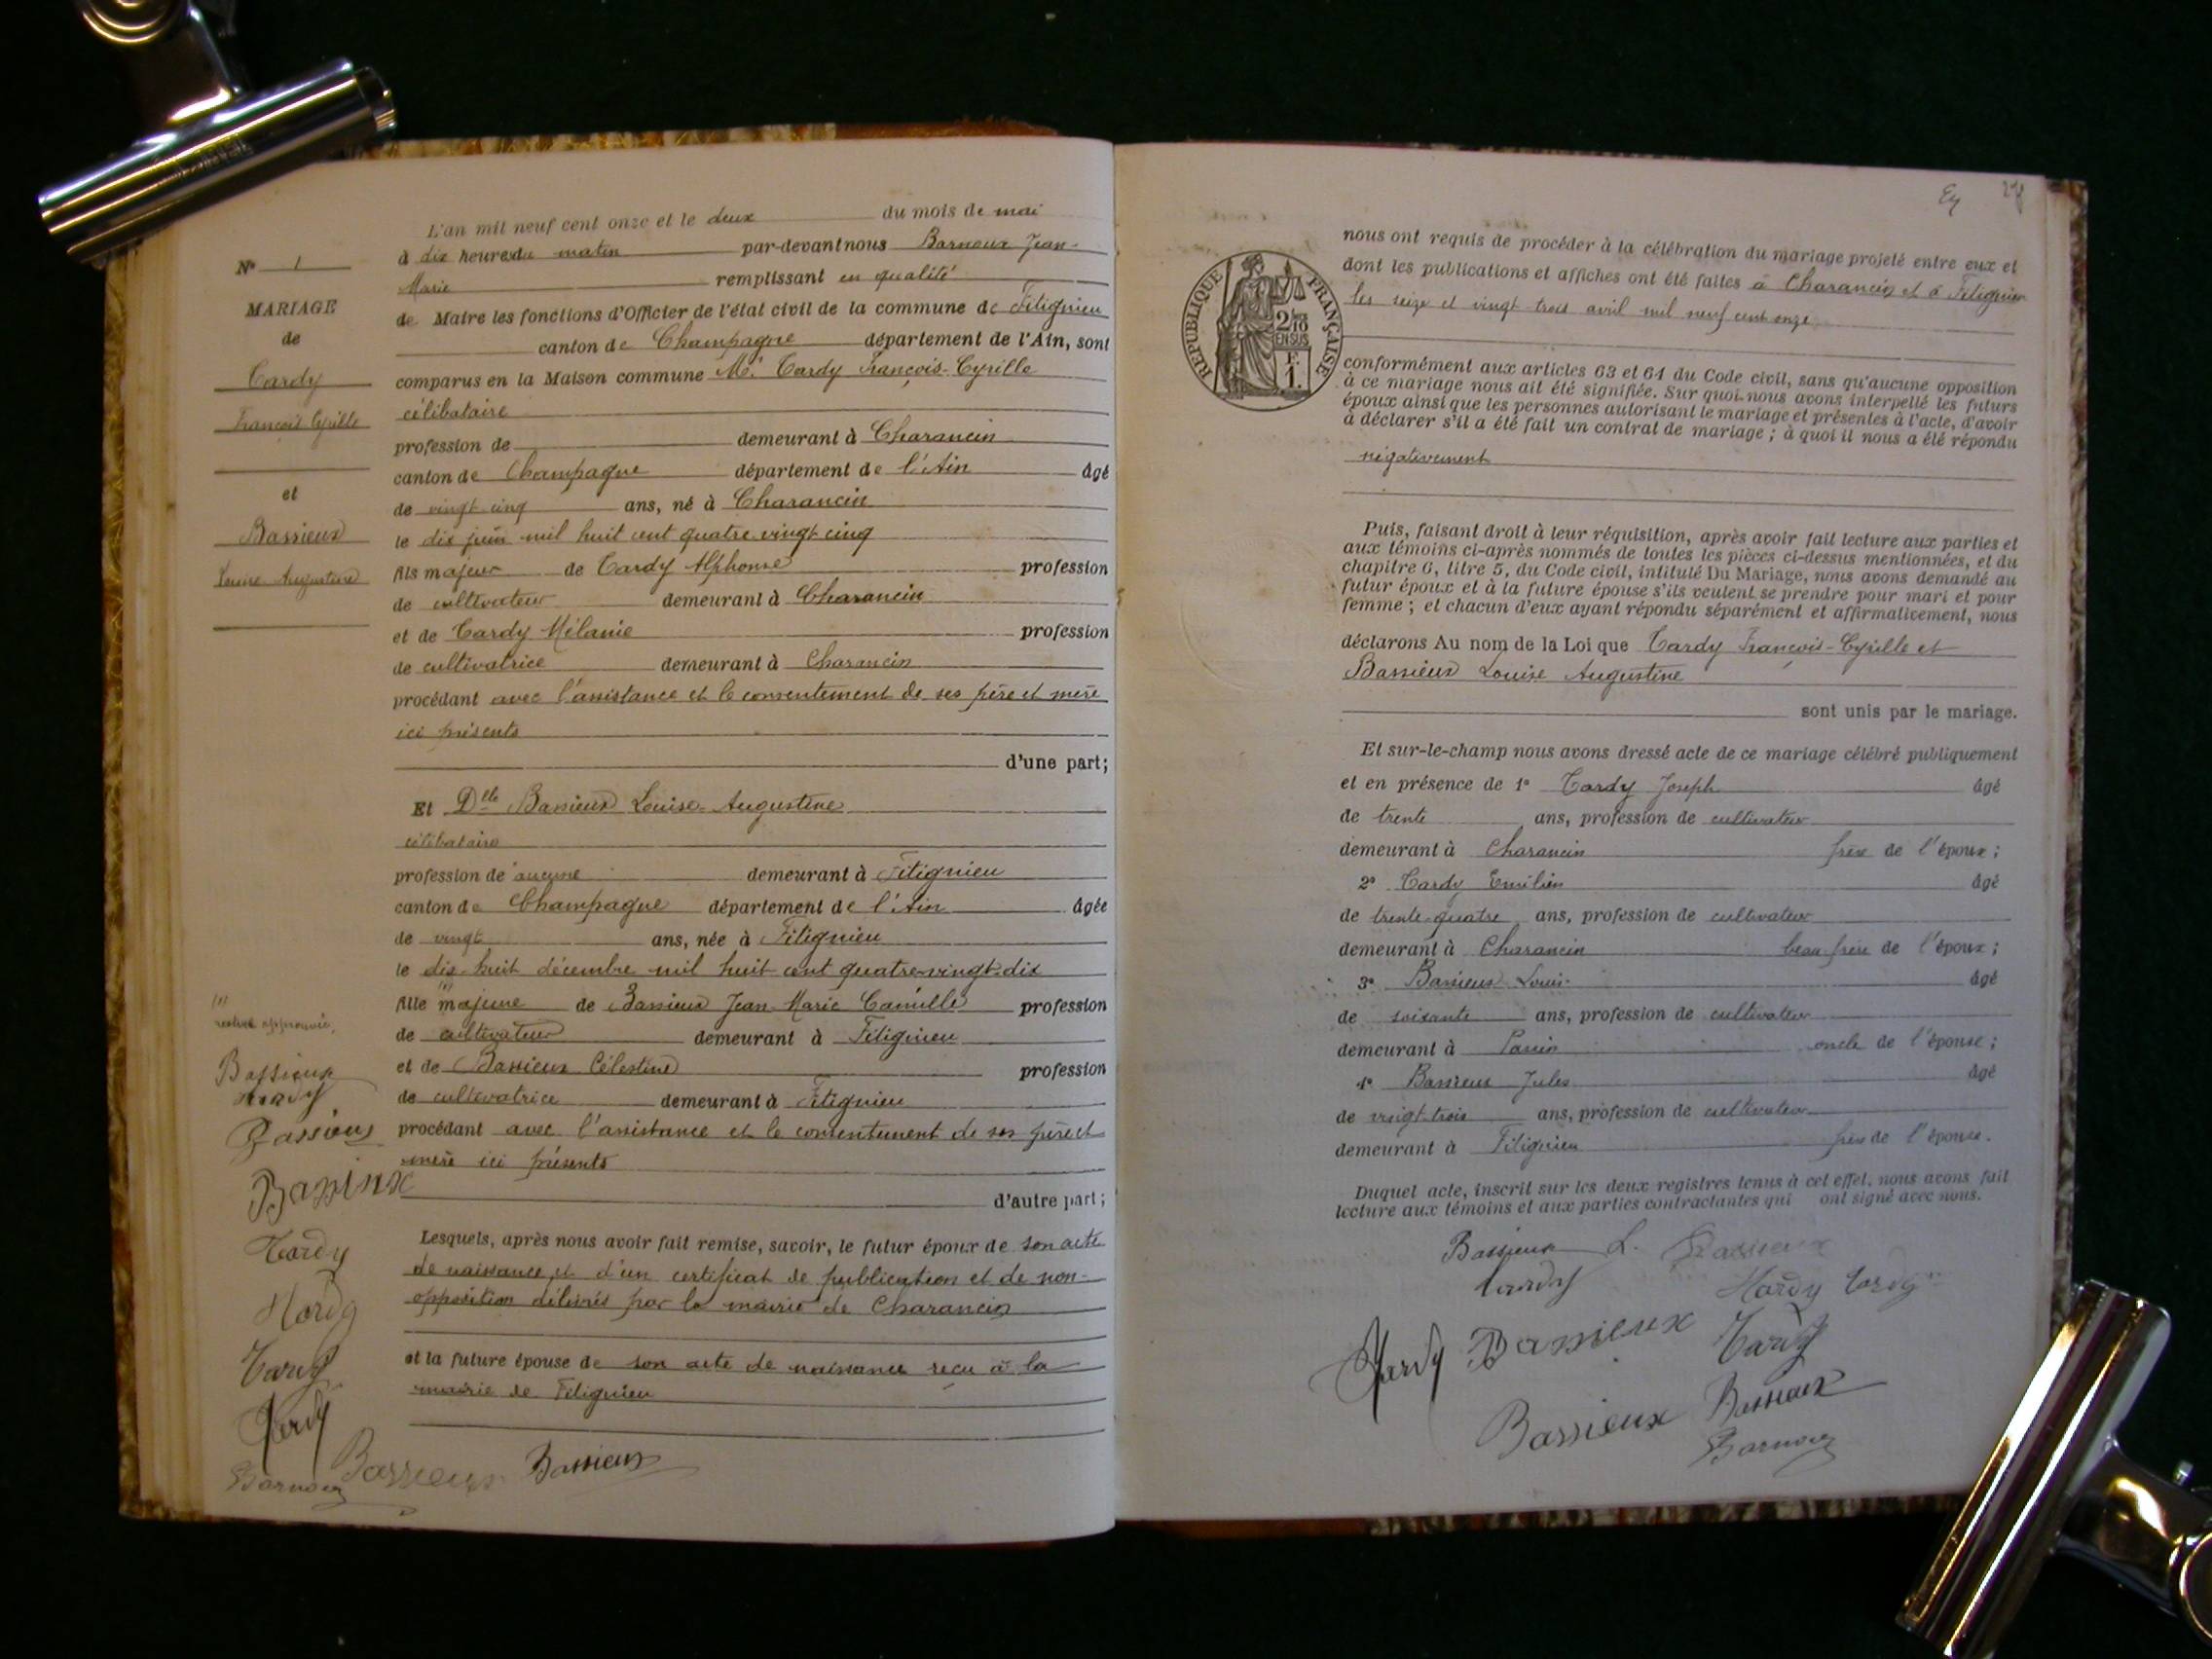 L'an mil neuf cent onze et le deux du mois de mai
à dix heures du matin par-devant nous Barnoux Jean-
Marie remplissant en qualité
de Maire les fonctions d'Officier de l'état civil de la commune de Fitignieu
canton de Champagne département de l'Ain, sont
comparus en la Maison commune Mr. Tardy François-Cyrille
célibataire
profession de demeurant à Charancin
canton de Champagne département de l'Ain âgé
de vingt cinq ans, né à Charancin
le dix juin mil huit cent quatre vingt cinq
fils majeur de Tardy Alphonse profession
de cultivateur demeurant à Charancin
et de Tardy Mélanie profession
de cultivatrice demeurant à Charancin
procédant avec l'assistance et le consentement de ses père et mère
ici présents
d'une part;
Et Dlle Bassieux Louise-Augustine
célibataire
profession de aucune demeurant à Fitignieu
canton de Champagne département de l'Ain âgée
de vingt ans, née à Fitignieu
le dix huit décembre mil huit cent quatre-vingt-dix
fille majeure de Bassieux Jean-Marie Camille profession
de cultivateur demeurant à Fitignieu
et de Bassieux Célestine profession
de cultivatrice demeurant à Fitignieu
procédant avec l'assistance et le consentement de ses père et
mère ici présents
d'autre part;
Lesquels, après nous avoir fait remise, savoir, le futur époux de son acte
de naissance et d'un certificat de publication et de non-
opposition délivrés par la mairie de Charancin
et la future épouse de son acte de naissance reçu à la
mairie de Fitignieu
N° 1
MARIAGE
de
Tardy
François Cyrille
et
Bassieux
Louise Augustine
approuvé,
Bassieux
Tardy
Bassieux
Bassieux
Tardy
Tardy
Tardy
Tardy
Barnoux Bassieux Bassieux
27
REPUBLIQUE FRANÇAISE
2/10
EN SUS
F.
1.
nous ont requis de procéder à la célébration du mariage projeté entre eux et
dont les publications et affiches ont été faites à Charancin et à Fitignieu
les seize et vingt trois avril mil neuf cent onze
conformément aux articles 63 et 64 du Code civil, sans qu'aucune opposition
à ce mariage nous ait été signifiée. Sur quoi nous avons interpellé les futurs
époux ainsi que les personnes autorisant le mariage et présentes à l'acte, d'avoir
à déclarer s'il a été fait un contrat de mariage ; à quoi il nous a été répondu
négativement
Puis, faisant droit à leur réquisition, après avoir fait lecture aux parties et
aux témoins ci-après nommés de toutes les pièces ci-dessus mentionnées, et du
chapitre 6, titre 5, du Code civil, intitulé Du Mariage, nous avons demandé au
futur époux et à la future épouse s'ils veulent se prendre pour mari et pour
femme ; et chacun d'eux ayant répondu séparément et affirmativement, nous
déclarons Au nom de la Loi que Tardy François-Cyrille et
Bassieux Louise Augustine
sont unis par le mariage.
Et sur-le-champ nous avons dressé acte de ce mariage célébré publiquement
et en présence de 1° Tardy Joseph âgé
de trente ans, profession de cultivateur
demeurant à Charancin frère de l'époux ;
2° Tardy Emilien âgé
de trente-quatre ans, profession de cultivateur
demeurant à Charancin beau-frère de l'époux ;
3° Bassieux Louis âgé
de soixante ans, profession de cultivateur
demeurant à oncle de l'épouse ;
4° Bassieux Jules âgé
de vingt-trois ans, profession de cultivateur
demeurant à Fitignieu frère de l'épouse.
Duquel acte, inscrit sur les deux registres tenus à cet effet, nous avons fait
lecture aux témoins et aux parties contractantes qui ont signé avec nous.
Bassieux L. Bassieux
Tardy Tardy Tardy
Tardy Bassieux Tardy
Bassieux Bassieux
Barnoux